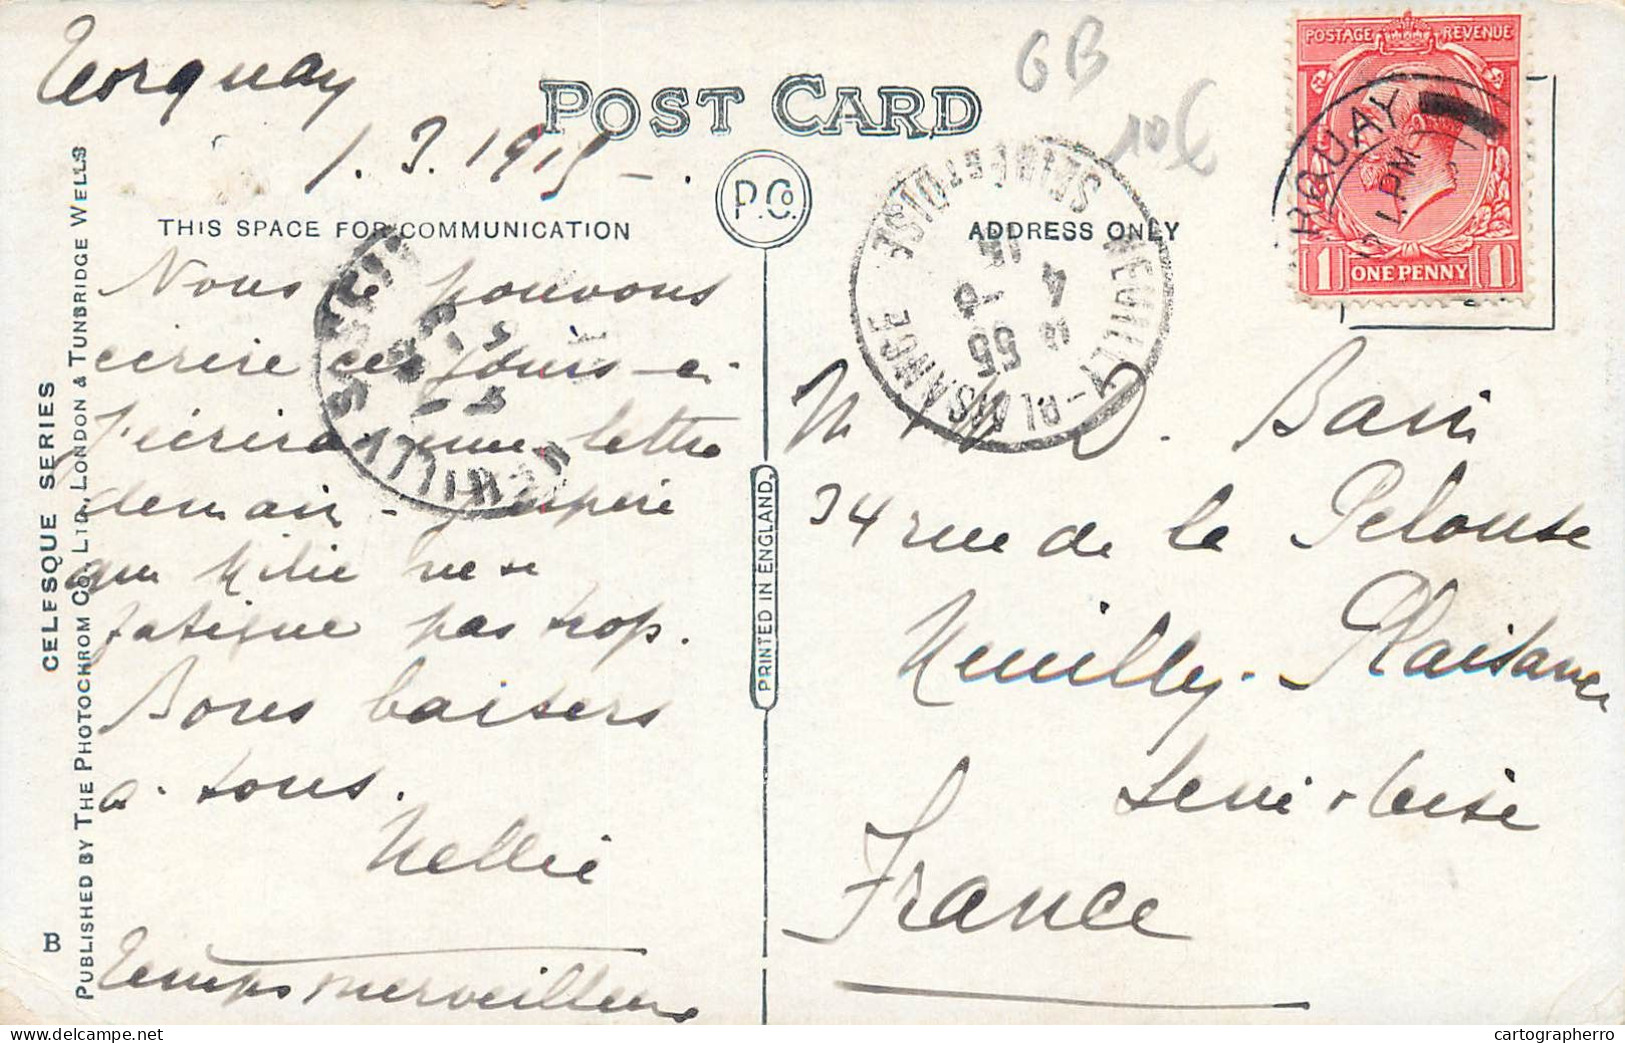 Torquay
POST CARD
GB
10€
1.3.1915
P.Co.
THIS SPACE FOR COMMUNICATION
ADDRESS ONLY
POSTAGE REVENUE
1 ONE PENNY 1
RQUAY
1. PM
NEUILLY-PLAISANCE
SEINE-ET-OISE
18 55
4 - 6
15
NEUILLY
Nous pouvons
écrire ces jours-ci
J'écrirai une lettre
demain - J'espère
que ne se
fatigue pas trop.
Bons baisers
a tous.
Nellie
Temps merveilleux
M D. Bari
34 rue de la Pelouse
Neuilly-Plaisance
Seine & Oise
France
CELESQUE SERIES
PUBLISHED BY THE PHOTOCHROM CO., LTD., LONDON & TUNBRIDGE WELLS
B
PRINTED IN ENGLAND.
cartographerro